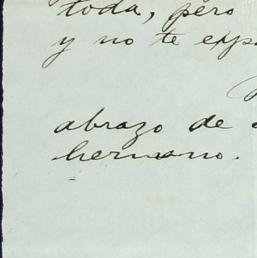 toda, pero
y no te exp
abrazo de
hermano.